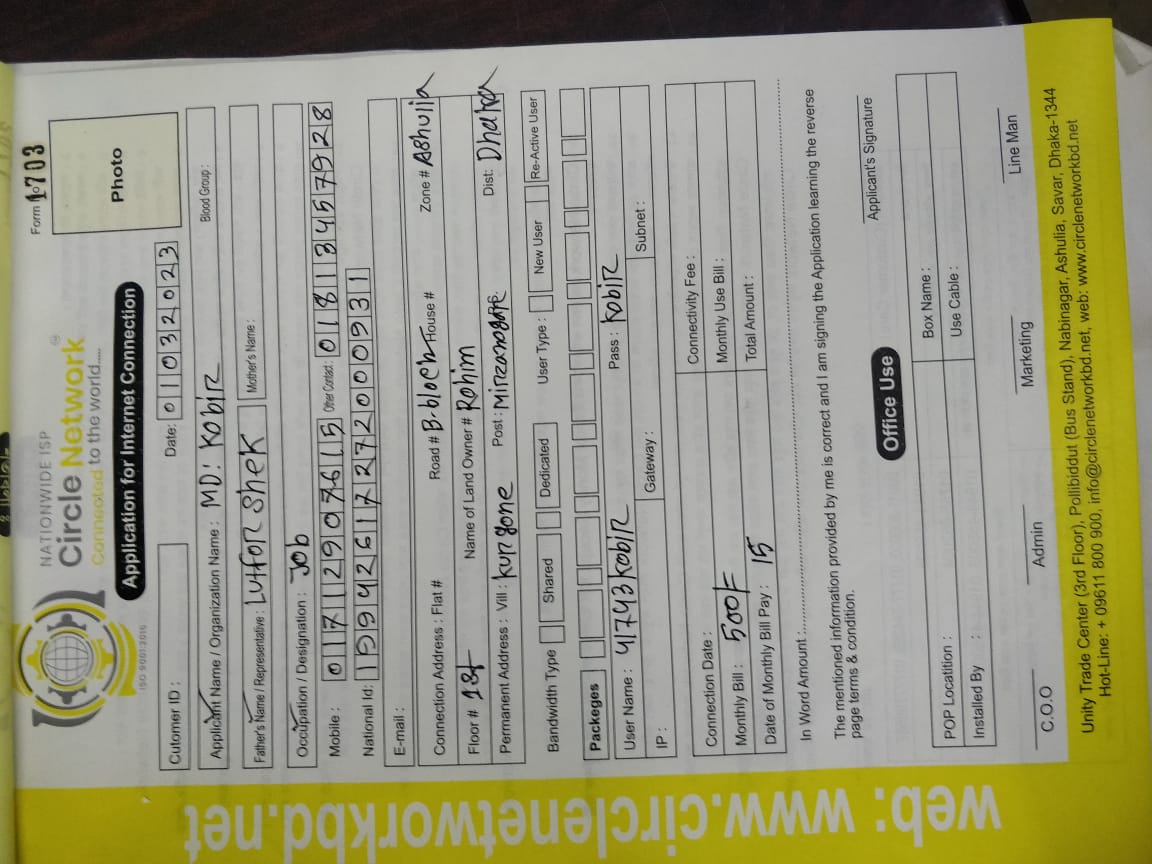 NATIONWIDE ISP
Circle Network
Connected to the world.....
ISO 9001:2015
Form 1703
Photo
Application for Internet Connection
Cutomer ID :
Date: 01032023
Applicant Name / Organization Name : MD: Kobir
Blood Group :
Father's Name / Representative : Lutfor Shek
Mother's Name :
Occupation / Designation : Job
Mobile : 01712907615 Other Contact : 01813457928
National Id: 19942617272000931
E-mail :
Connection Address : Flat # Road # B-bloch House # Zone # Ashulia
Floor # 1st Name of Land Owner # Rohim
Permanent Address : Vill : Post : Dist: Dhaka
Bandwidth Type Shared Dedicated User Type : New User Re-Active User
Packeges
User Name : 41743kobir Pass : kobir
IP : Gateway : Subnet :
Connection Date : Connectivity Fee :
Monthly Bill : 500/= Monthly Use Bill :
Date of Monthly Bill Pay : 15 Total Amount :
In Word Amount :
The mentioned information provided by me is correct and I am signing the Application learning the reverse
page terms & condition.
Applicant's Signature
Office Use
POP Locatition : Box Name :
Installed By : Use Cable :
C.O.O Admin Marketing Line Man
Unity Trade Center (3rd Floor), Pollibiddut (Bus Stand), Nabinagar, Ashulia, Savar, Dhaka-1344
Hot-Line: + 09611 800 900, info@circlenetworkbd.net, web: www.circlenetworkbd.net
web: www.circlenetworkbd.net